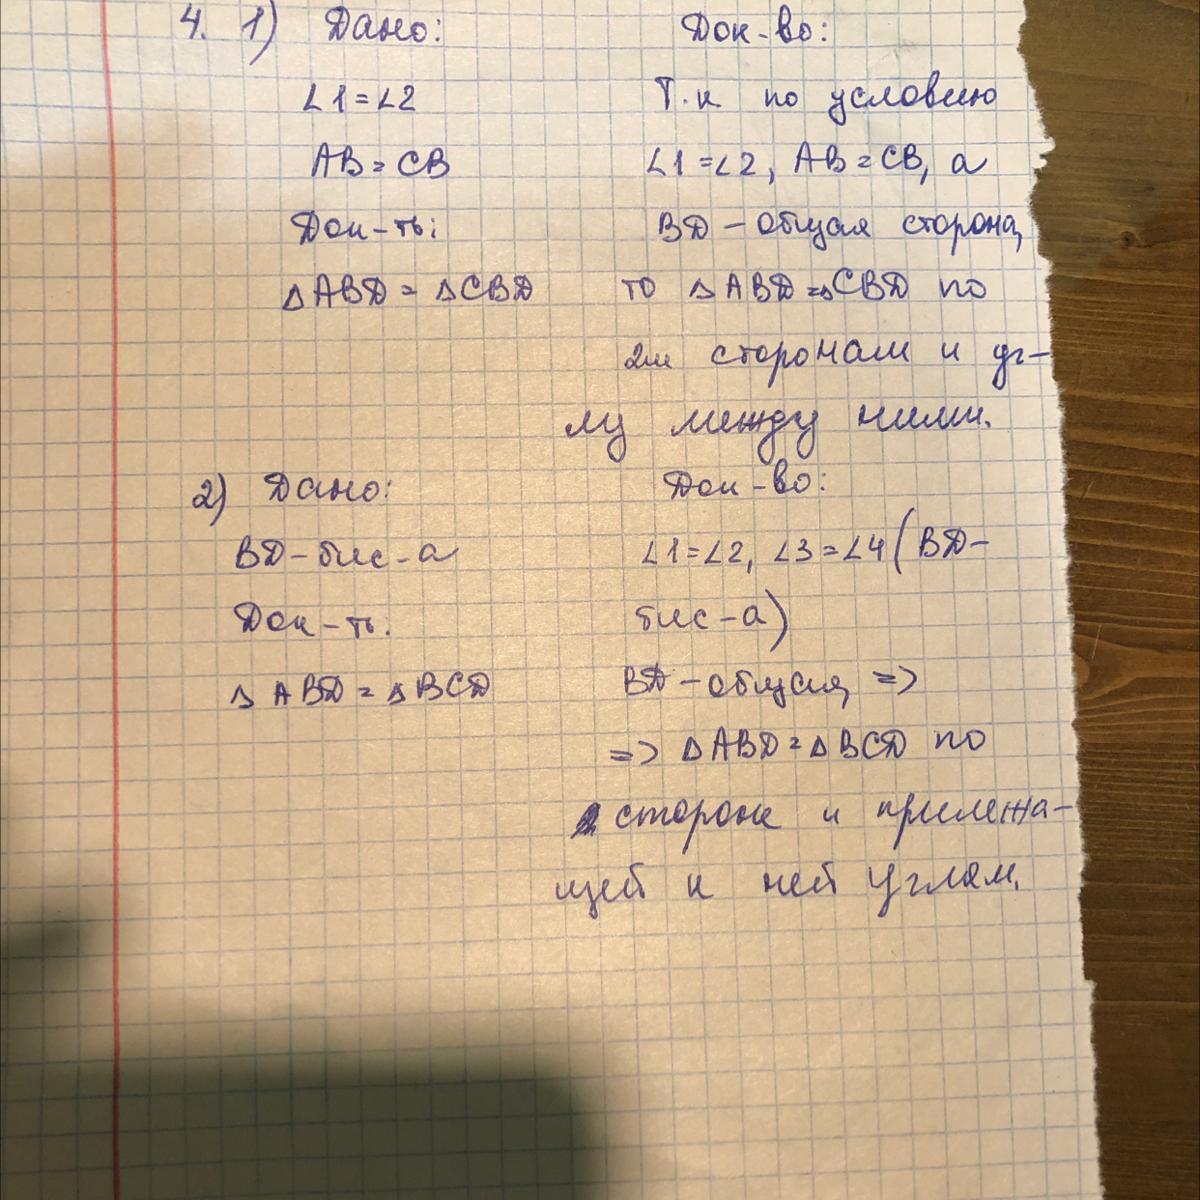 4. 1) Дано:
∠1=∠2
AB=CB
Док-ть:
△ABD=△CBD
Док-во:
Т.к по условию
∠1=∠2, AB=CB, а
BD-общая сторона,
то △ABD=△CBD по
2м сторонам и уг-
лу между ними.
2) Дано:
BD-бис-а
Док-ть.
△ABD=△BCD
Док-во:
∠1=∠2, ∠3=∠4(BD-
бис-а)
BD-общая, =>
=> △ABD=△BCD по
стороне и прилежа-
щей к ней углам.